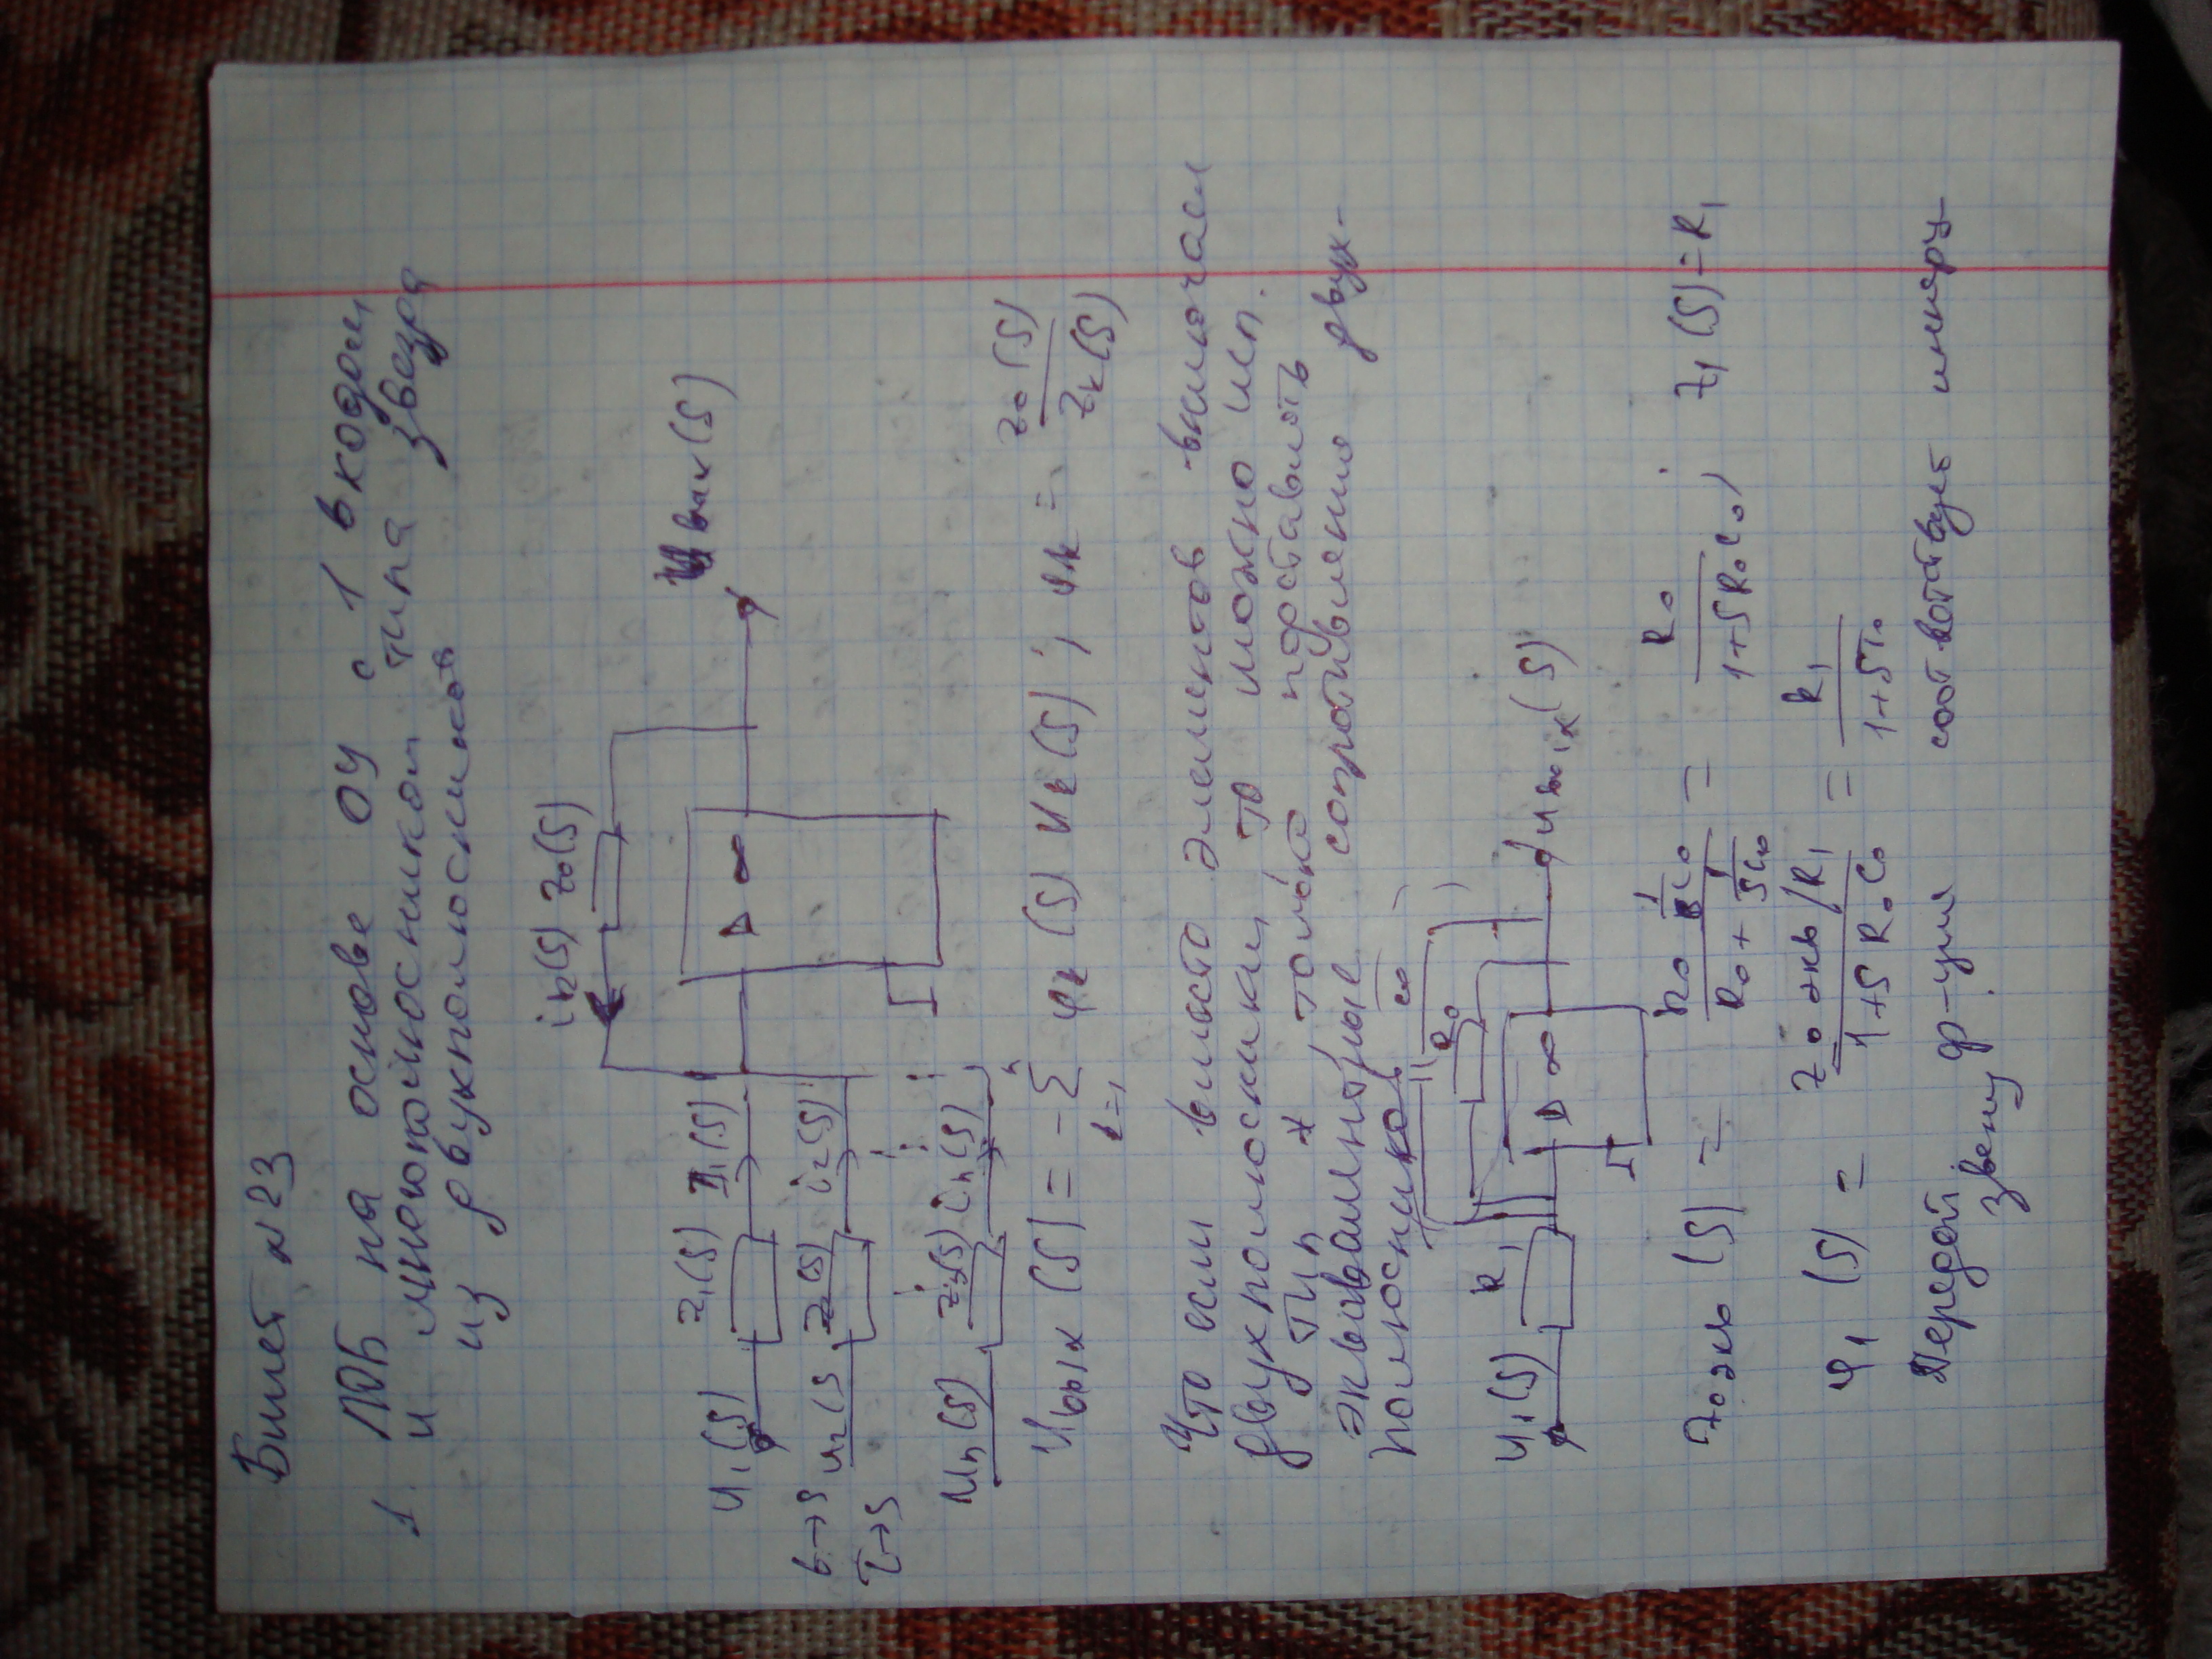 Билет №23
1. ЛОБ на основе ОУ с 1 входом
и многополюсником типа звезда
из двухполюсников
ik(S) Z0(S)
U1(S) Z1(S) I1(S) ▷ ∞ Uвых(S)
t→S U2(S Z2(S) i2(S)
τ→S
Un(S) Z3(S) in(S)
Uвых(S) = -Σ k=1 n φk(S) Uk(S); φk = Z0(S)/Zk(S)
Что если вместо элементов включаем
двухполюсники, то можно исп.
только подставлять
эквивалентные сопротивления двух-
полюсников
C0
R0
U1(S) R1 ▷ ∞ Uвых(S)
Z0 экв (S) = (R0 1/SC0)/(R0 + 1/SC0) = R0/(1+SR0C0); Z1(S)=R1
φ1(S) = (Z0 экв/R1)/(1+SR0C0) = R1/(1+ST0
Передат. ф-ция соответствует инерц-
звену